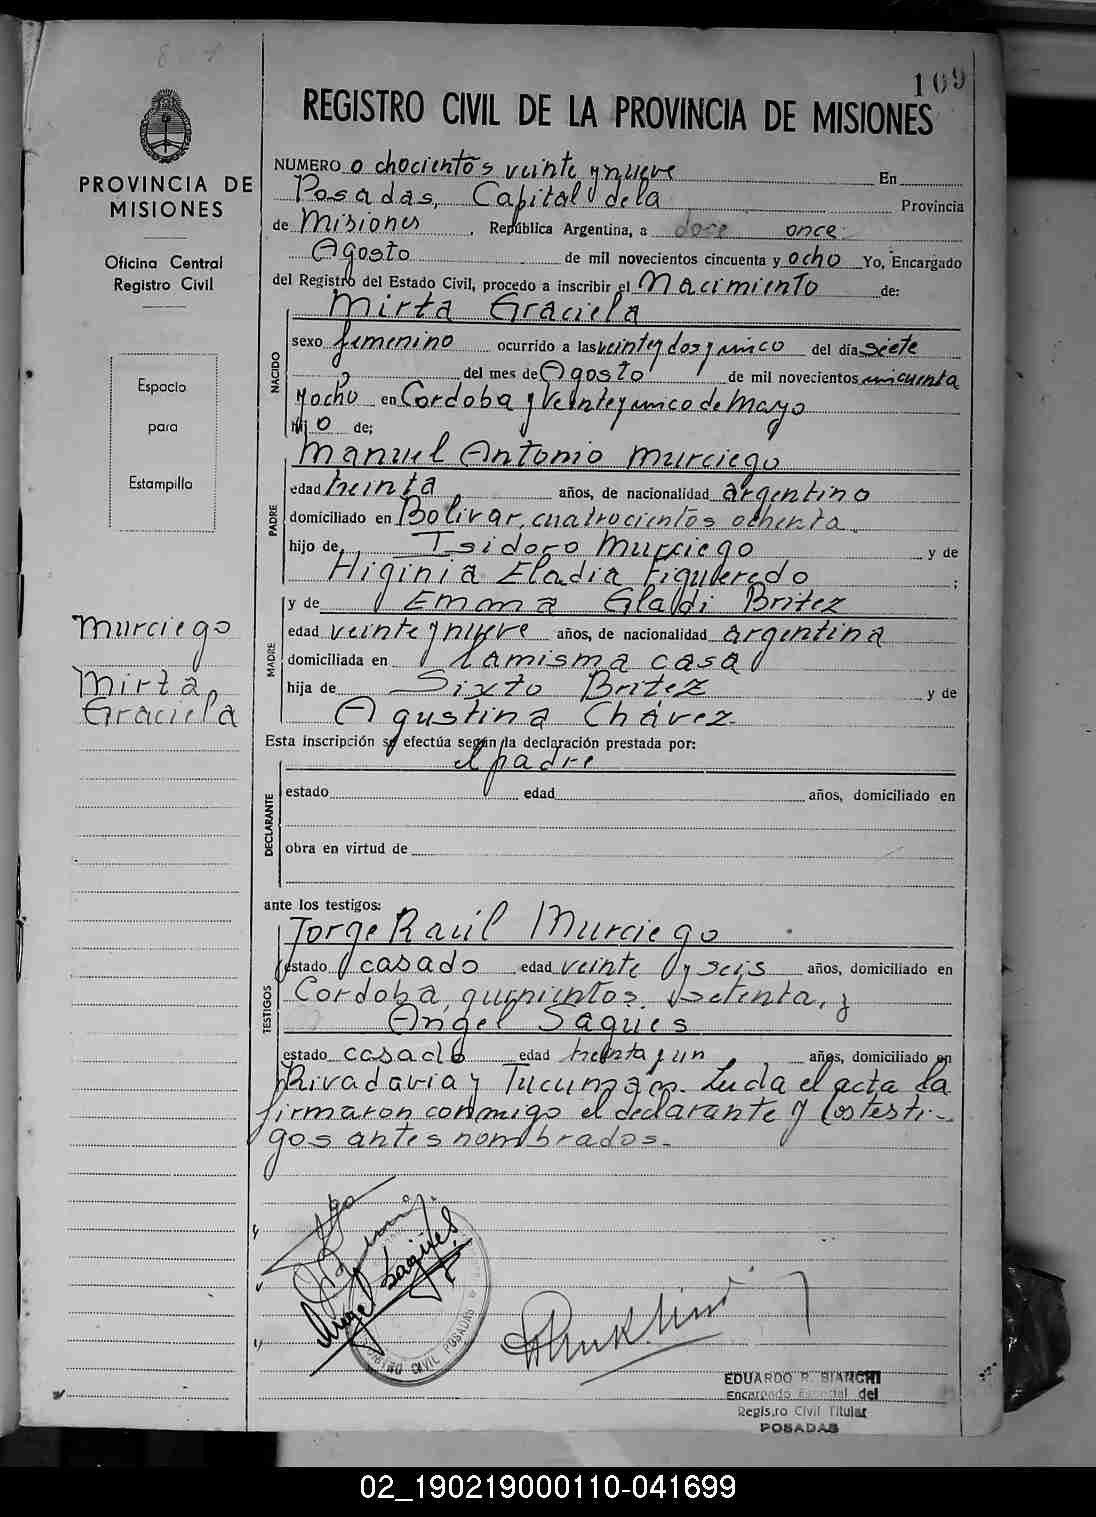 109
REGISTRO CIVIL DE LA PROVINCIA DE MISIONES
PROVINCIA DE
MISIONES
Oficina Central
Registro Civil
Espacio
para
Estampilla
Murciego
Mirta
Graciela
NUMERO ochocientos veinte y nueve En
Posadas, Capital de la Provincia
de Misiones, República Argentina, a doce once
Agosto de mil novecientos cincuenta y ocho Yo, Encargado
del Registro del Estado Civil, procedo a inscribir el Nacimiento de:
NACIDO
Mirta Graciela
sexo femenino ocurrido a las veinte y dos y cinco del día siete
del mes de Agosto de mil novecientos cincuenta
y ocho en Cordoba y Veinte y cinco de Mayo
de;
PADRE
Manuel Antonio Murciego
edad treinta años, de nacionalidad argentino
domiciliado en Bolivar, cuatrocientos ochenta
hijo de, Isidoro Murciego y de
Higinia Eladia Figueredo ;
MADRE
y de Emma Gladi Britez
edad veinte y nueve años, de nacionalidad argentina
domiciliada en la misma casa
hija de Sixto Britez y de
Agustina Chávez
Esta inscripción se efectúa según la declaración prestada por:
DECLARANTE
el padre
estado edad años, domiciliado en
obra en virtud de
ante los testigos:
TESTIGOS
Jorge Raúl Murciego
estado casado edad veinte y seis años, domiciliado en
Cordoba, quinientos setenta, y
Angel Sagües
estado casado edad treinta y un años, domiciliado en
Rivadavia y Tucuman. Leida el acta la
firmaron conmigo el declarante y los testi-
gos antes nombrados.-
Angel Sagües
REGISTRO CIVIL POSADAS
EDUARDO R. BIANCHI
Encargado Especial del
Registro Civil Titular
POSADAS
02_190219000110-041699